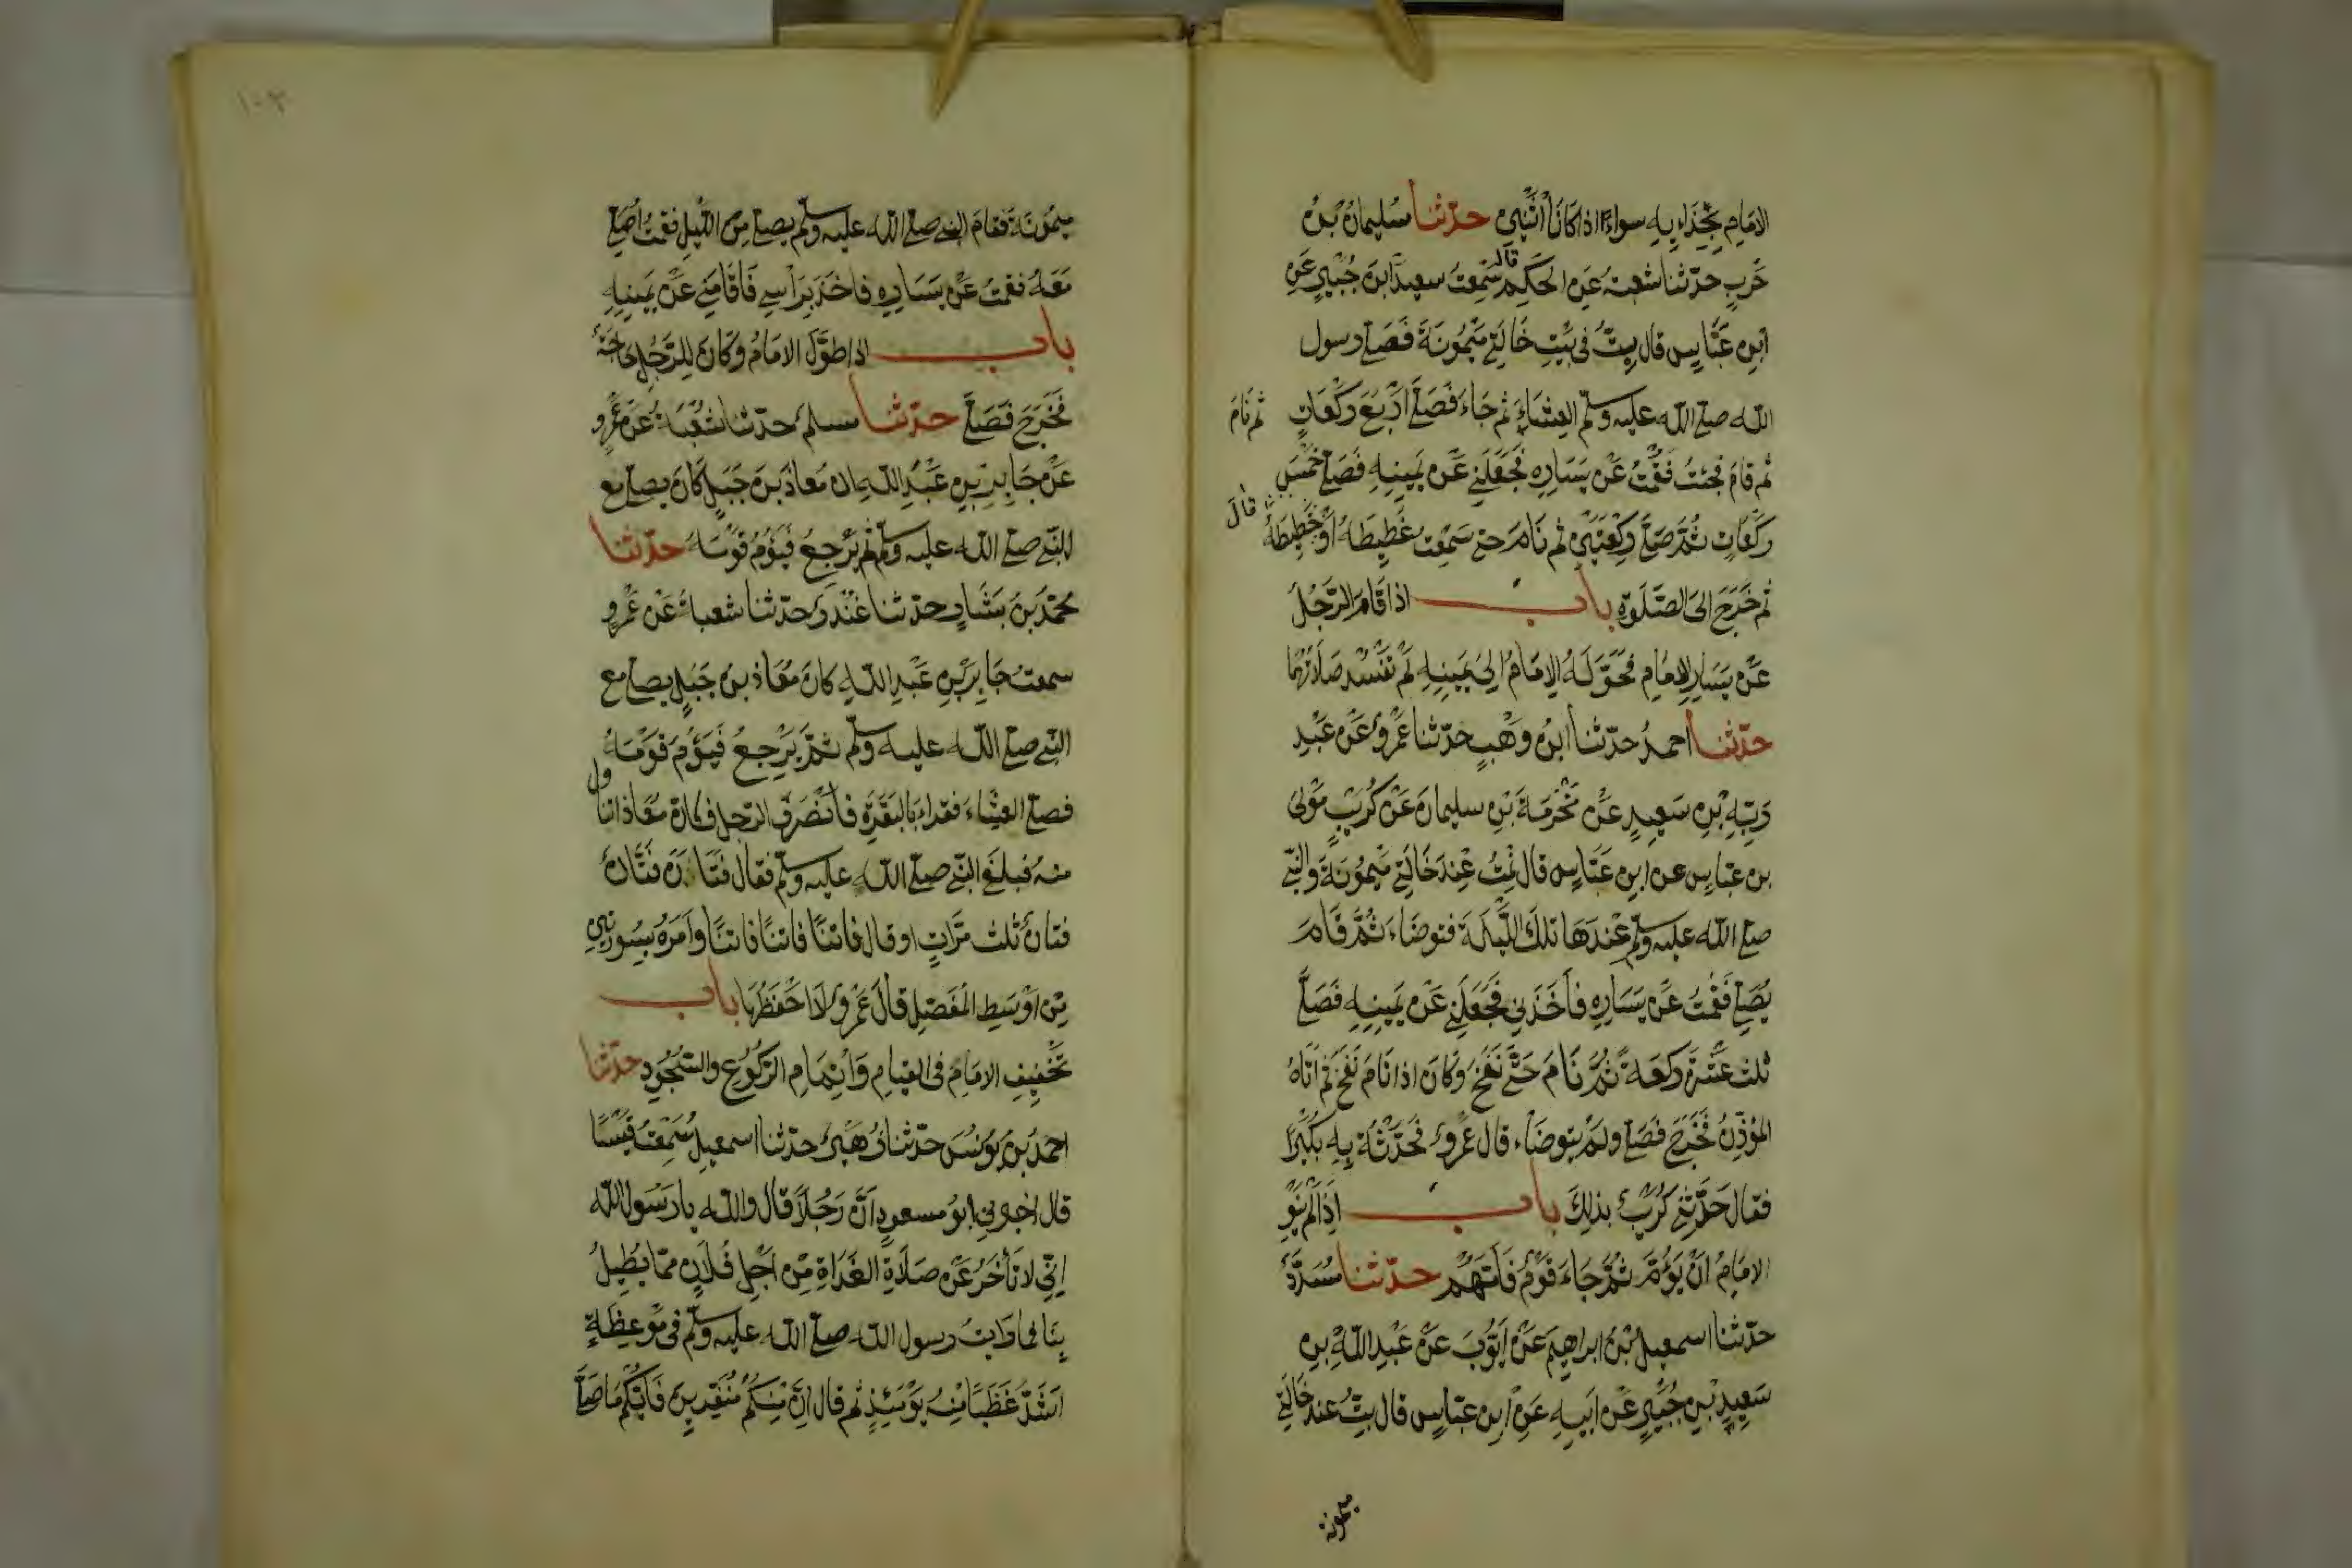 الامام بحذاءيه سواءً اذا كانا اثنين حدّثنا سليمان بن
حرب حدّثنا شعبة عن الحكم قال سمعت سعيد ابن جبير عن
ابن عبّاس قال بتّ في بيت خالتي ميمونة فصلّى رسول
الله صلى الله عليه وسلم العشاء ثم جاء فصلّى اربع ركعات ثم نام
ثم قام فجئت فقمت عن يساره فجعلني عن يمينه فصلّى خمس
ركعات ثمّ صلّى ركعتين ثم نام حتى سمعت غطيطه او خطيطه قال
ثم خرج الى الصّلوة باب اذا قام الرّجل
عن يسار الامام فحوّله الامام الى يمينه لم تفسد صلاتهما
حدّثنا احمد حدّثنا ابن وهب حدّثنا عمرو عن عبد
ربّه بن سعيد عن مخرمة بن سليمان عن كريب مولى
بن عباس عن ابن عبّاس قال نمت عند خالتي ميمونة والنبي
صلى الله عليه وسلم عندها تلك اللّيلة فتوضاء ثمّ قام
يصلّي فقمت عن يساره فاخذني فجعلني عن يمينه فصلّى
ثلث عشرة ركعة ثمّ نام حتّى نفخ وكان اذا نام نفخ ثم اتاه
المؤذّن فخرج فصلى ولم يتوضاء قال عمرو فحدّثت به بكيرًا
فقال حدّثني كريب بذلك باب اذا لم ينو
الامام ان يؤمّ ثمّ جاء قوم فامّهم حدّثنا مسدّد
حدّثنا اسمعيل بن ابراهيم عن ايّوب عن عبد الله بن
سعيد بن جبير عن ابيه عن ابن عبّاس قال بتّ عند خالتي
ميمونة
١٠٣
ميمونة فقام النبي صلى الله عليه وسلم يصلي من اللّيل فقمت اصلّي
معه فقمت عن يساره فاخذ براسي فاقامني عن يمينه
باب اذا طوّل الامام وكان للرّجل حاجة
فخرج فصلّى حدّثنا مسلم حدّثنا شعبة عن عمرو
عن جابر بن عبد الله ان معاذ بن جبل كان يصلي مع
النبي صلى الله عليه وسلم ثم يرجع فيؤم قومه حدّثنا
محمّد بن بشّار حدّثنا غندر حدّثنا شعبة عن عمرو
سمعت جابر بن عبد الله كان معاذ بن جبل يصلي مع
النبي صلى الله عليه وسلم ثمّ يرجع فيؤم قومه
فصلى العشاء فقراء بالبقرة فانصرف الرّجل فكان معاذا تناول
منه فبلغ النبي صلى الله عليه وسلم فقال فتان فتّان
فتان ثلث مرّات او قال فاتنًا فاتنًا فاتنًا وامره بسورتين
من اوسط المفصّل قال عمرو لا احفظهما باب
تخفيف الامام في القيام واتمام الرّكوع والسّجود حدّثنا
احمد بن يونس حدّثنا زهير حدّثنا اسمعيل سمعت قيسًا
قال اخبرني ابو مسعود انّ رجلًا قال والله يا رسول الله
انّي لاتأخر عن صلاة الغداة من اجل فلان ممّا يطيل
بنا فما رايت رسول الله صلى الله عليه وسلم في موعظة
اشدّ غضبًا منه يومئذ ثم قال انّ منكم منفرين فايّكم ما صلّى